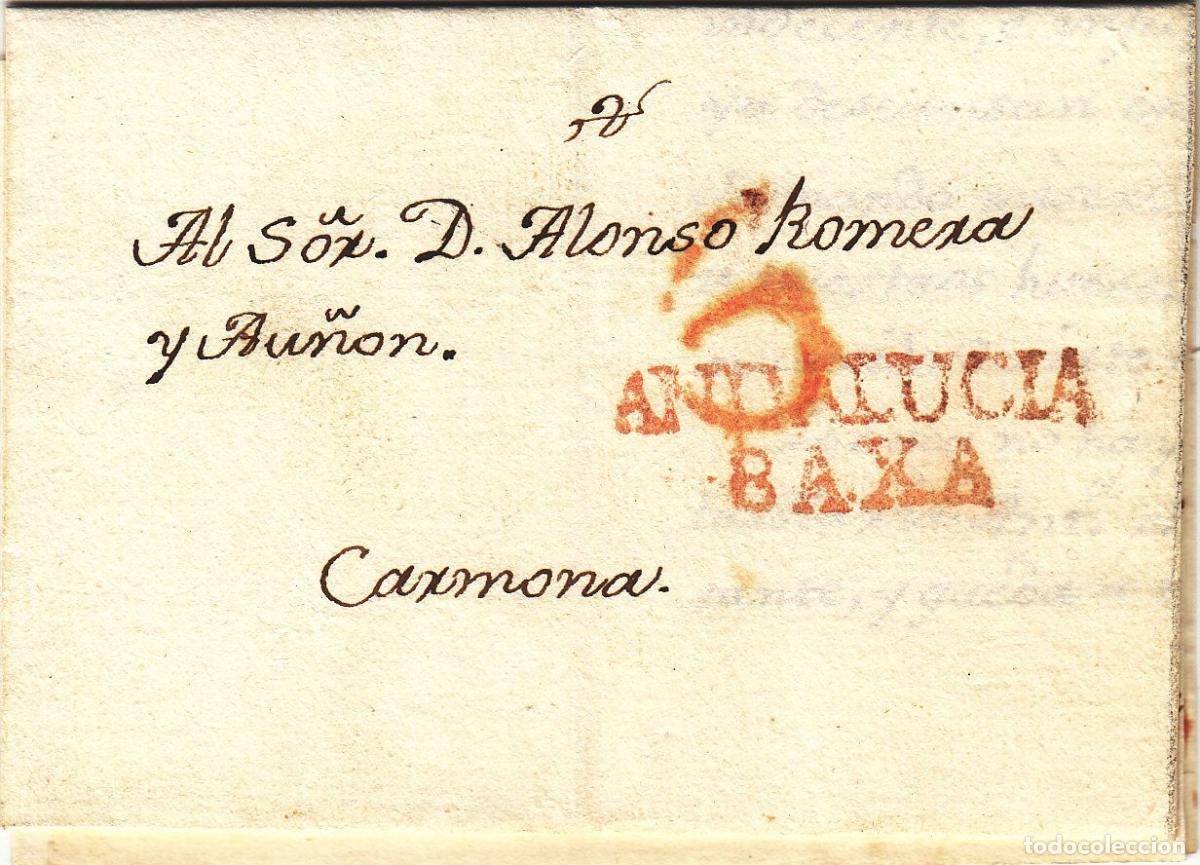 Al Sõr. D. Alonso Romera
y Auñon.
5
ANDALUCIA
BAXA
Carmona.
todocoleccion